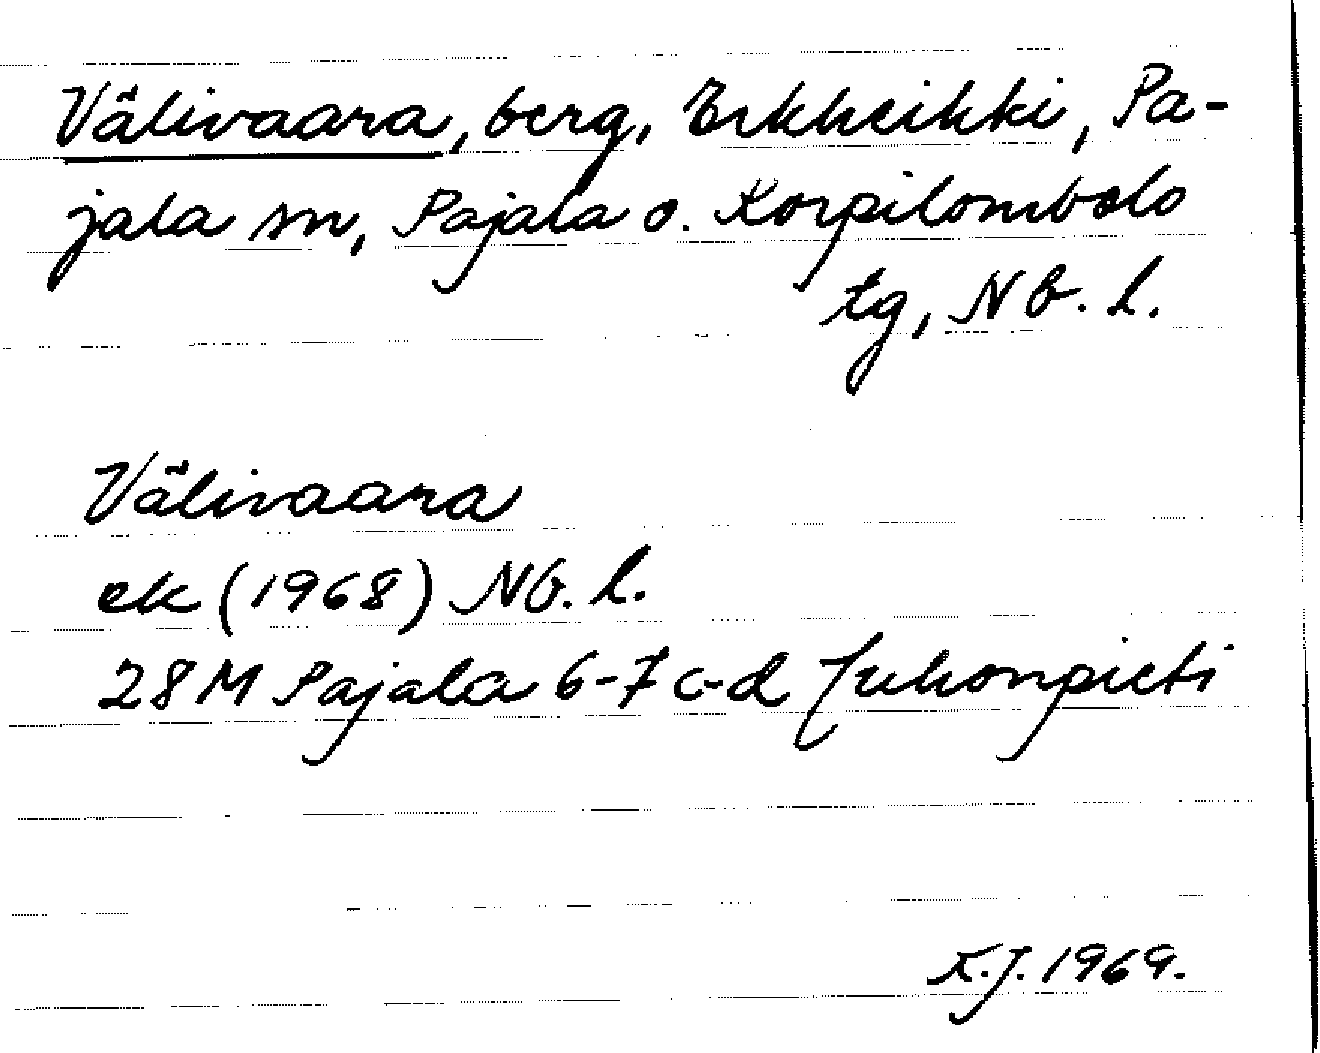 Välivaara, berg, Erkheikki, Pa-
jala sn, Pajala o. Korpilombolo
tg, Nb. l.
Välivaara
ek (1968) Nb. l.
28 M Pajala 6-7 c-d Juhonpieti
K.J. 1969.